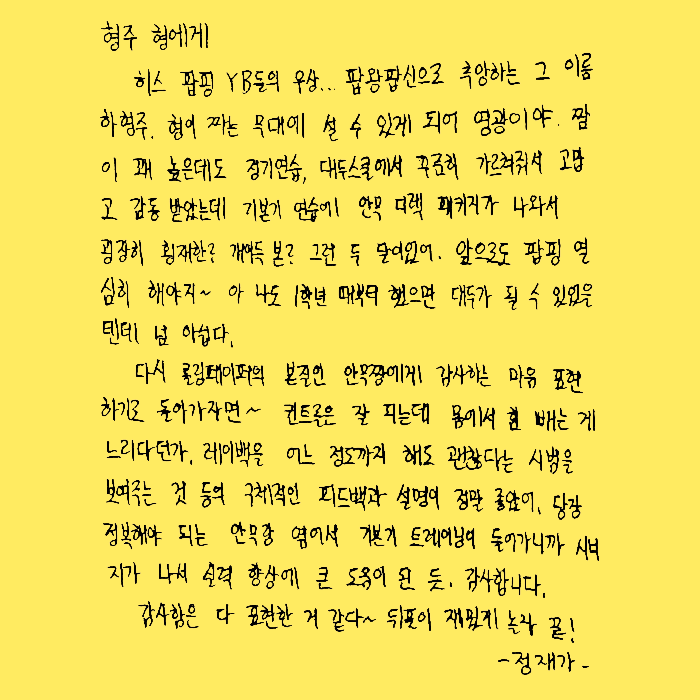 형주 형에게
히스 팝핑 YB들의 우상... 팝왕팝신으로 추앙하는 그 이름
하형주. 형이 짜는 무대에 설 수 있게 되어 영광이야. 짬
이 꽤 높은데도 정기연습, 대두스쿨에서 꾸준히 가르쳐줘서 고맙
고 감동 받았는데 기본기 연습에 안무 디렉 패키지가 나와서
굉장히 횡재한? 개이득 본? 그런 두 달이었어. 앞으로도 팝핑 열
심히 해야지~ 아 나도 1학년 때부터 했으면 대두가 될 수 있었을
텐데 넘 아쉽다.
다시 롤링페이퍼의 본질인 안무짱에게 감사하는 마음 표현
하기로 돌아가자면~ 컨트롤은 잘 되는데 몸에서 힘 빼는 게
느리다던가, 레이백을 어느 정도까지 해도 괜찮다는 시범을
보여주는 것 등의 구체적인 피드백과 설명이 정말 좋았어, 당장
정복해야 되는 안무랑 엮어서 기본기 트레이닝이 들어가니까 시너
지가 나서 실력 향상에 큰 도움이 된 듯. 감사합니다.
감사함은 다 표현한 거 같다~ 뒤풀이 재밌게 놀자 끝!
-정재가-